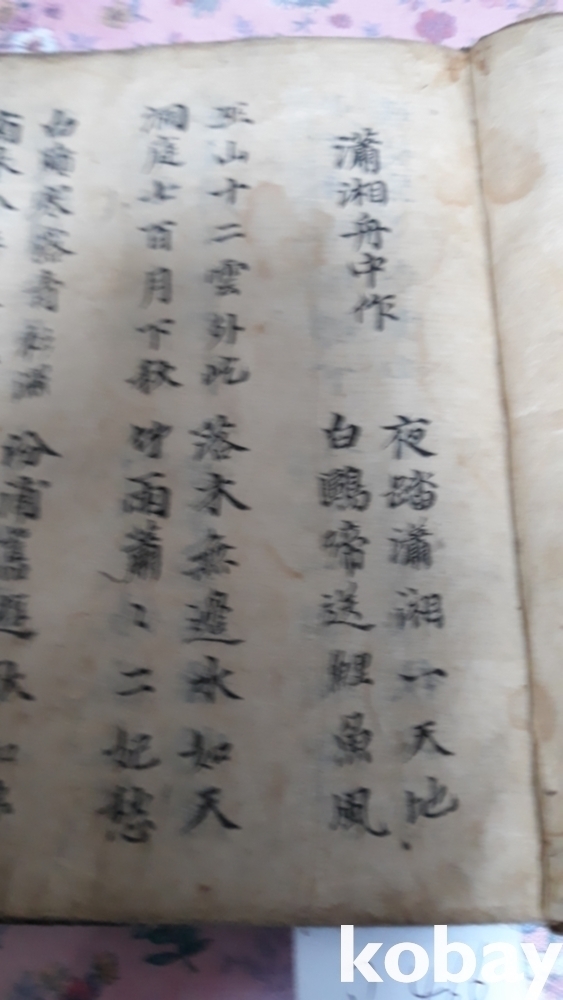 瀟湘舟中作
夜踏瀟湘一天地
白鷗啼送鯉魚風
巫山十二雲外
洞庭七百月下秋
落木無邊水如天
竹雨蕭〻二妃愁
雨 露
浦舊題
kobay